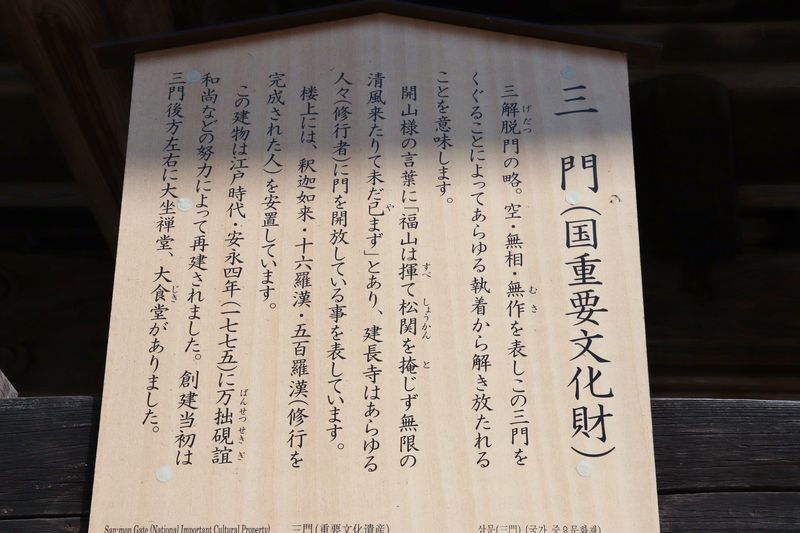 三門(国重要文化財)
三解脱門の略。空・無相・無作を表しこの三門を
くぐることによってあらゆる執着から解き放たれる
ことを意味します。
開山様の言葉に「福山は揮て松関を掩じず無限の
清風来たりて未だ已まず」とあり、建長寺はあらゆる
人々(修行者)に門を開放している事を表しています。
楼上には、釈迦如来・十六羅漢・五百羅漢(修行を
完成された人)を安置しています。
この建物は江戸時代・安永四年(一七七五)に万拙碩誼
和尚などの努力によって再建されました。創建当初は
三門後方左右に大坐禅堂、大食堂がありました。
San-mon Gate (National Important Cultural Property)
三門(重要文化遺産)
삼문(三門) (국가 중요문화재)